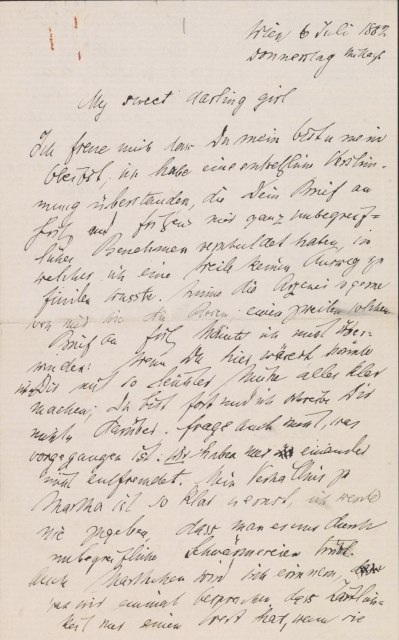 Wien 6 Juli 1882
Donnerstag Mittags
My sweet darling girl
Ich freue mich dass Du mein bist u mein
bleibst, ich habe eine entsetzliche Verstim-
mung überstanden, die Dein Brief an
Fritz und Fritzens mir ganz unbegreif-
liches Benehmen verschuldet haben, in
welcher ich eine Weile keinen Ausweg zu
finden wusste. Nimm die
von mir einen zweiten solchen
Brief an Fritz könnte ich nicht über-
winden. Wenn Du hier wärest könnte
Dir mit so leichter Mühe alles klar
machen; Du bist fort und ich schreibe Dir
nicht darüber. Frage auch nicht, was
vorgegangen ist. Wir haben uns einander
nicht entfremdet. Mein Verhältnis zu
Martha ist so klar u ernst, ich werde
nie zugeben, dass man es uns durch
unbegreifliche Schwärmereien trübt.
Auch Marthchen wird sich erinnern
sie mir einmal versprochen, dass Zärtlich-
keit nur einen Wert hat, wenn sie